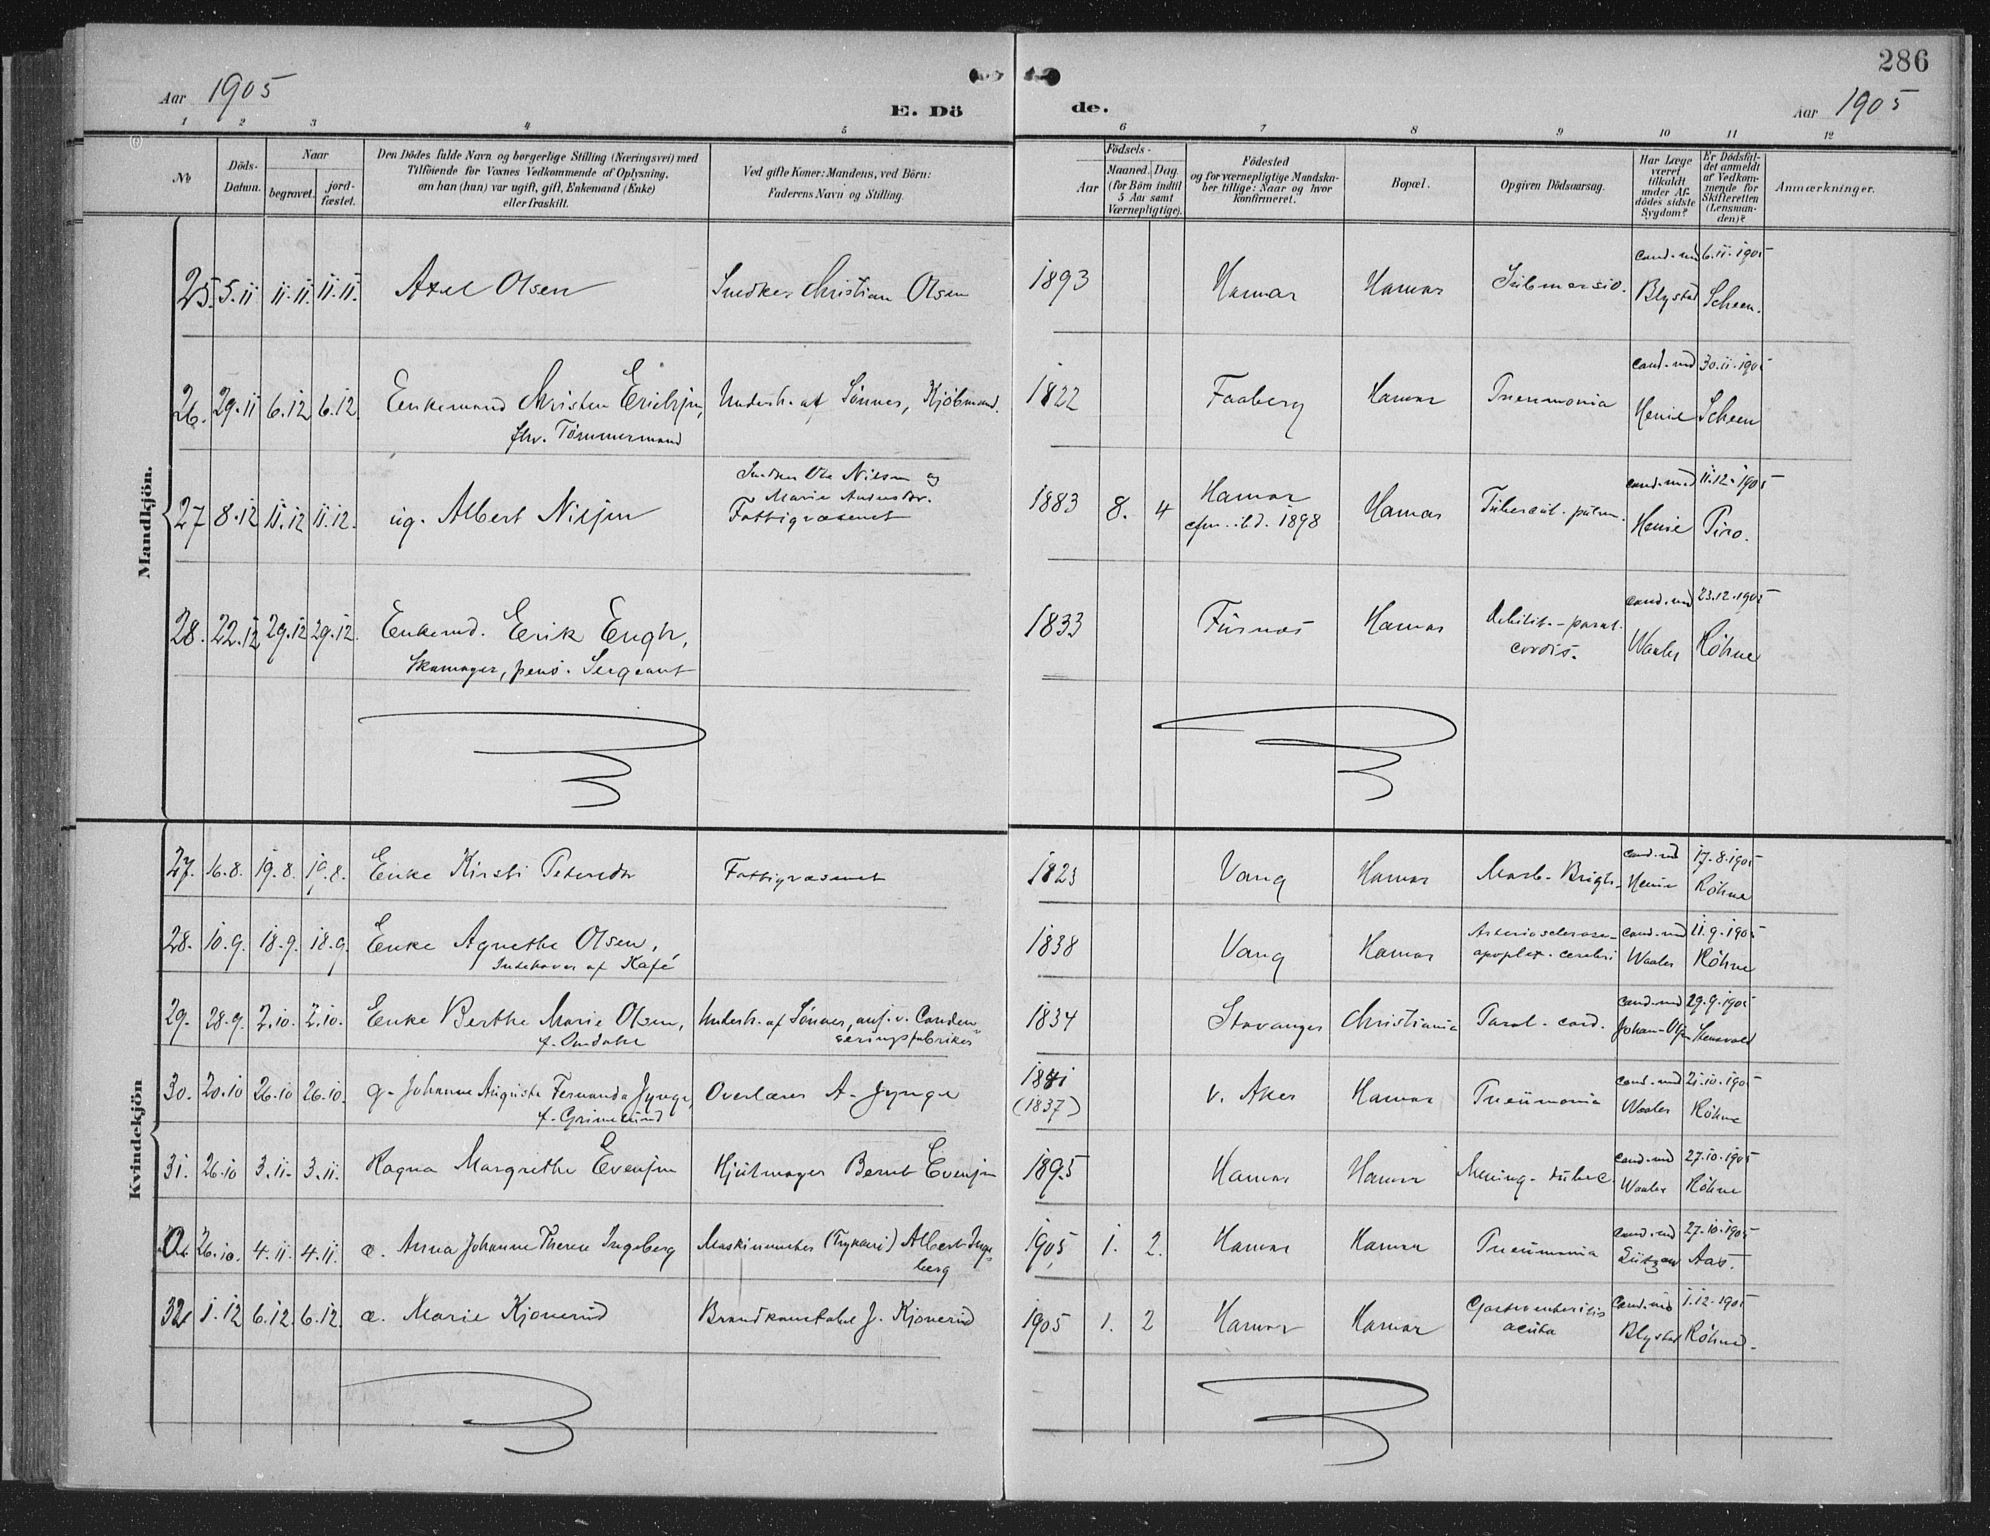 286
Aar 1905
E. Dö de.
Aar 1905
1 2 3 4 5 6 7 8 9 10 11 12
No
Döds-Datum.
Naar
begravet.
jord-fæstet.
Den Dödes fulde Navn og borgerlige Stilling (Næringsvei) med
Tilföiende for Voxnes Vedkommende af Oplysning,
om han (hun) var ugift, gift, Enkemand (Enke)
eller fraskilt.
Ved gifte Koner: Mandens, ved Börn:
Faderens Navn og Stilling.
Födsels-
Aar
Maaned. Dag.
(for Börn indtil
5 Aar samt
Værnepligtige).
Födested
og for værnepligtige Mandska-
ber tillige: Naar og hvor
konfirmeret.
Bopæl.
Opgiven Dödsaarsag.
Har Læge
været
tilkaldt
under Af-
dödes sidste
Sygdom?
Er Dödsfal-
det anmeldt
af Vedkom-
mende for
Skifteretten
(Lensman-
den)?
Anmærkninger.
Mandkjön.
25. 5.11 11.11 11.11. Axel Olsen Snedker Christian Olsen 1893 Hamar Hamar Submersio. cand. med Blystad 6.11.1905 Scheen.
26. 29.11 6.12 6.12 Enkemand Christen Erichsen, Underh. af Sønner, Kjøbmænd. 1822 Faaberg Hamar Pneumonia cand. med Henie 30.11.1905 Scheen
fhv. Tømmermand
27 8.12 11.12 11.12. ug. Albert Nilsen Snedker Ole Nilsen og
Marie Andersdr.
Fattigvæsenet 1883 8. 4 Hamar
cfm. ibd. 1898 Hamar Tubercul. pulm. cand. med Henie 11.12.1905
28. 22.12 29.12 29.12. Enkemd. Erik Engh, 1833 Furnæs Hamar Debilit. - paral.
cordis. cand. med Waaler 23.12.1905 Röhne
Skomager, pens. Sergeant
Kvindekjön
27. 16.8. 19.8. 19.8. Enke Kirsti Pedersdr Fattigvæsenet 1823 Vang Hamar Morb. Brigh. cand. md Henie 17.8.1905 Röhne
28. 10.9. 18.9. 18.9. Enke Agnethe Olsen, 1838 Vang Hamar Arteriosclerose-
apoplex. cerebri cand. md Waaler 11.9.1905 Röhne
Indehaver af Kafé
29. 28.9. 2.10. 2.10. Enke Berthe Marie Olsen, Underh. af Sønner, ans. v. Conden-
seringsfabriker 1834 Stavanger Christiania Paral. cord. cand. md 29.9.1905
30. 20.10 26.10 26.10. g. Johanne Augusta Fernanda Jynge, Overlærer A. Jynge 1841
(1837) v. Aker Hamar Pneumonia cand. med Waaler 21.10.1905 Röhne
f. Grimelund
31. 26.10 3.11. 3.11. Ragna Margrethe Evensen Hjulmager Bernt Evensen 1895 Hamar Hamar Mening. tuberc. cand. md Waaler 27.10.1905 Röhne
26.10. 4.11. 4.11. æ. Anna Johanne Therese Ingeberg Maskinmester (Trykkeri) Albert Inge-
berg 1905 1. 2. Hamar Hamar Pneumonia cand. md 27.10.1905 Aas.
32 1.12 6.12. 6.12. æ. Marie Kjonerud Brandkonstabel J. Kjonerud 1905 1. 2 Hamar Hamar Gastroenteritis
acuta cand. md Blystad 1.12.1905 Röhne.